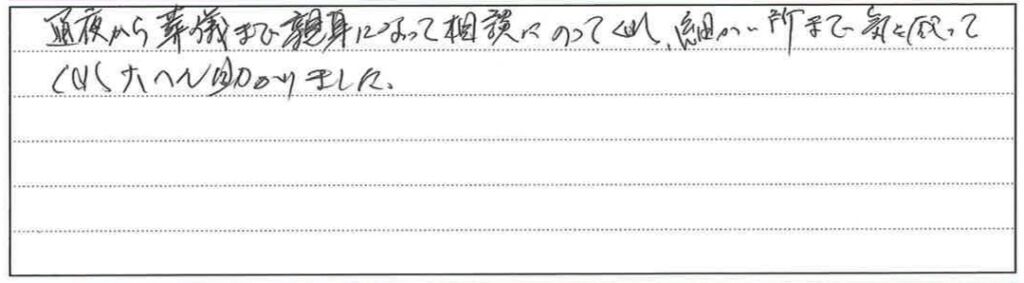 通夜から葬儀まで親身になって相談にのってくれ、細かい所まで気を配って
くれ大へん助かりました。